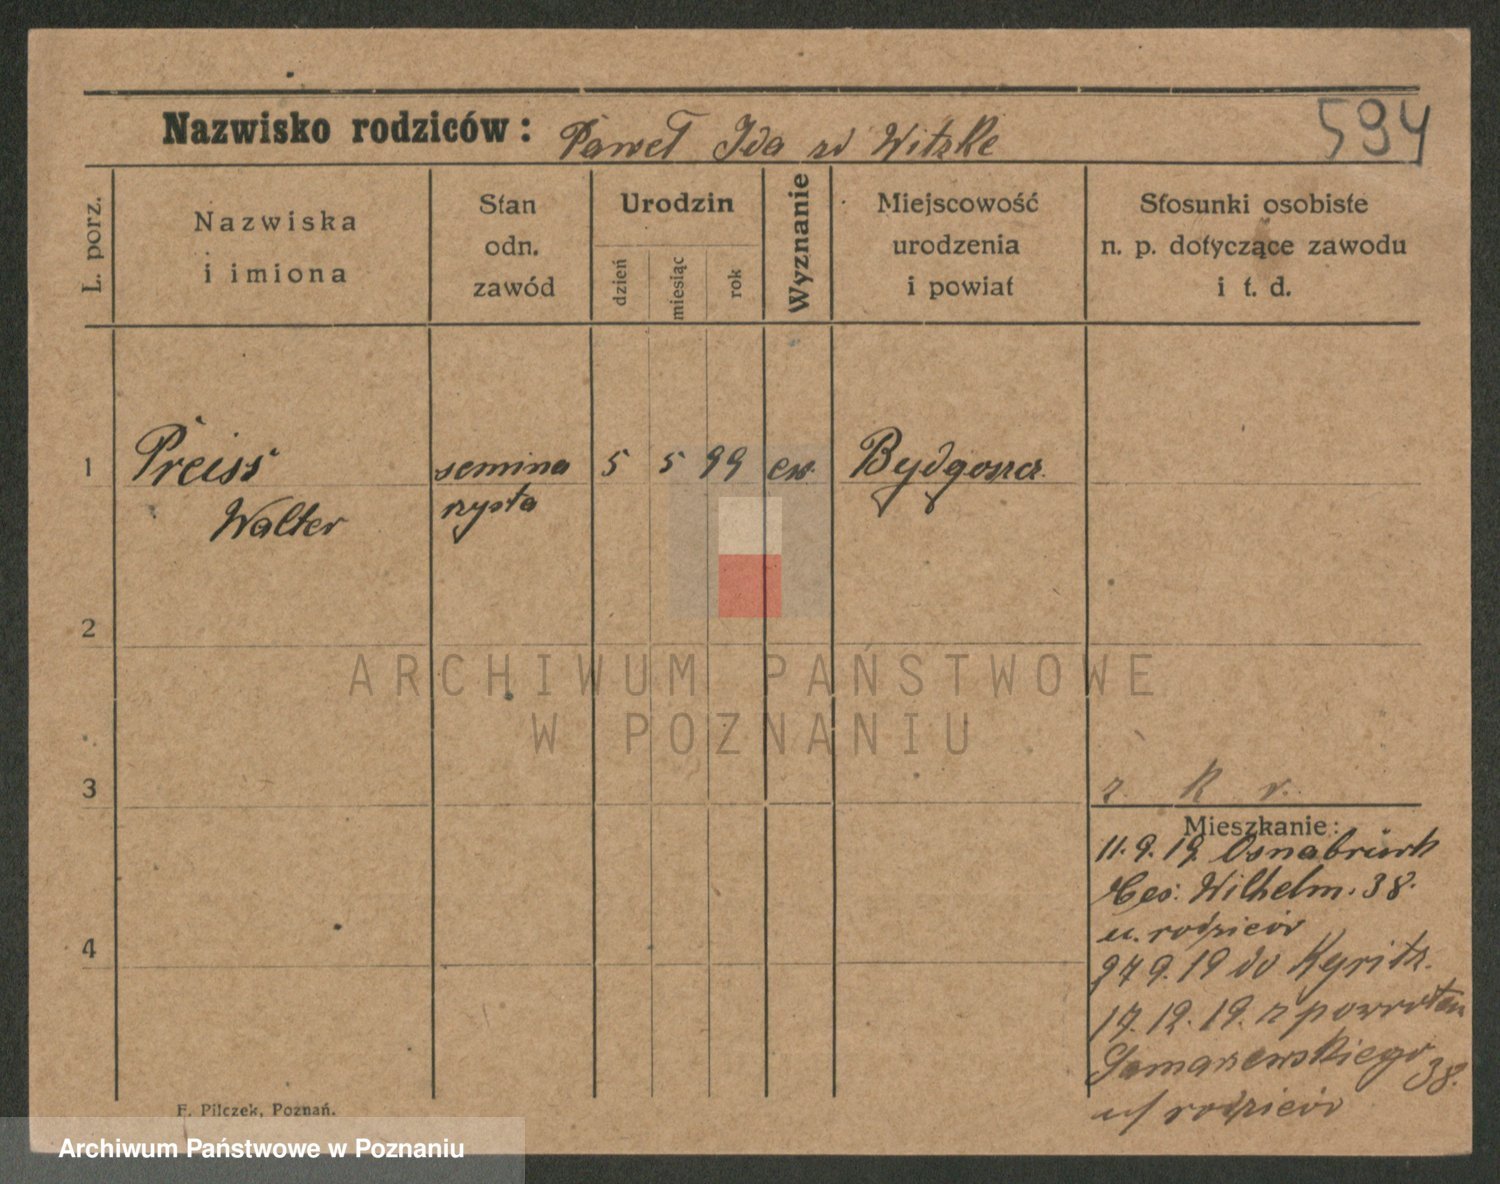 Nazwisko rodziców: Paweł Ida zd Witzke
594
L. porz.
Nazwiska
i imiona
Stan
odn.
zawód
Urodzin
dzień
miesiąc
rok
Wyznanie
Miejscowość
urodzenia
i powiat
Stosunki osobiste
n. p. dotyczące zawodu
i t. d.
1
Preiss
Walter
semina
rzysta
5 5 99 ew.
Bydgoszcz
2
ARCHIWUM PAŃSTWOWE
W POZNANIU
3
z k r.
Mieszkanie:
11.9.19 Osnabrück
Ces. Wilhelm. 38.
u. rodziców
4
9.19 do Kyritz.
17.12.19. z powrotem
38.
u/ rodziców
F. Pilczek, Poznań.
Archiwum Państwowe w Poznaniu